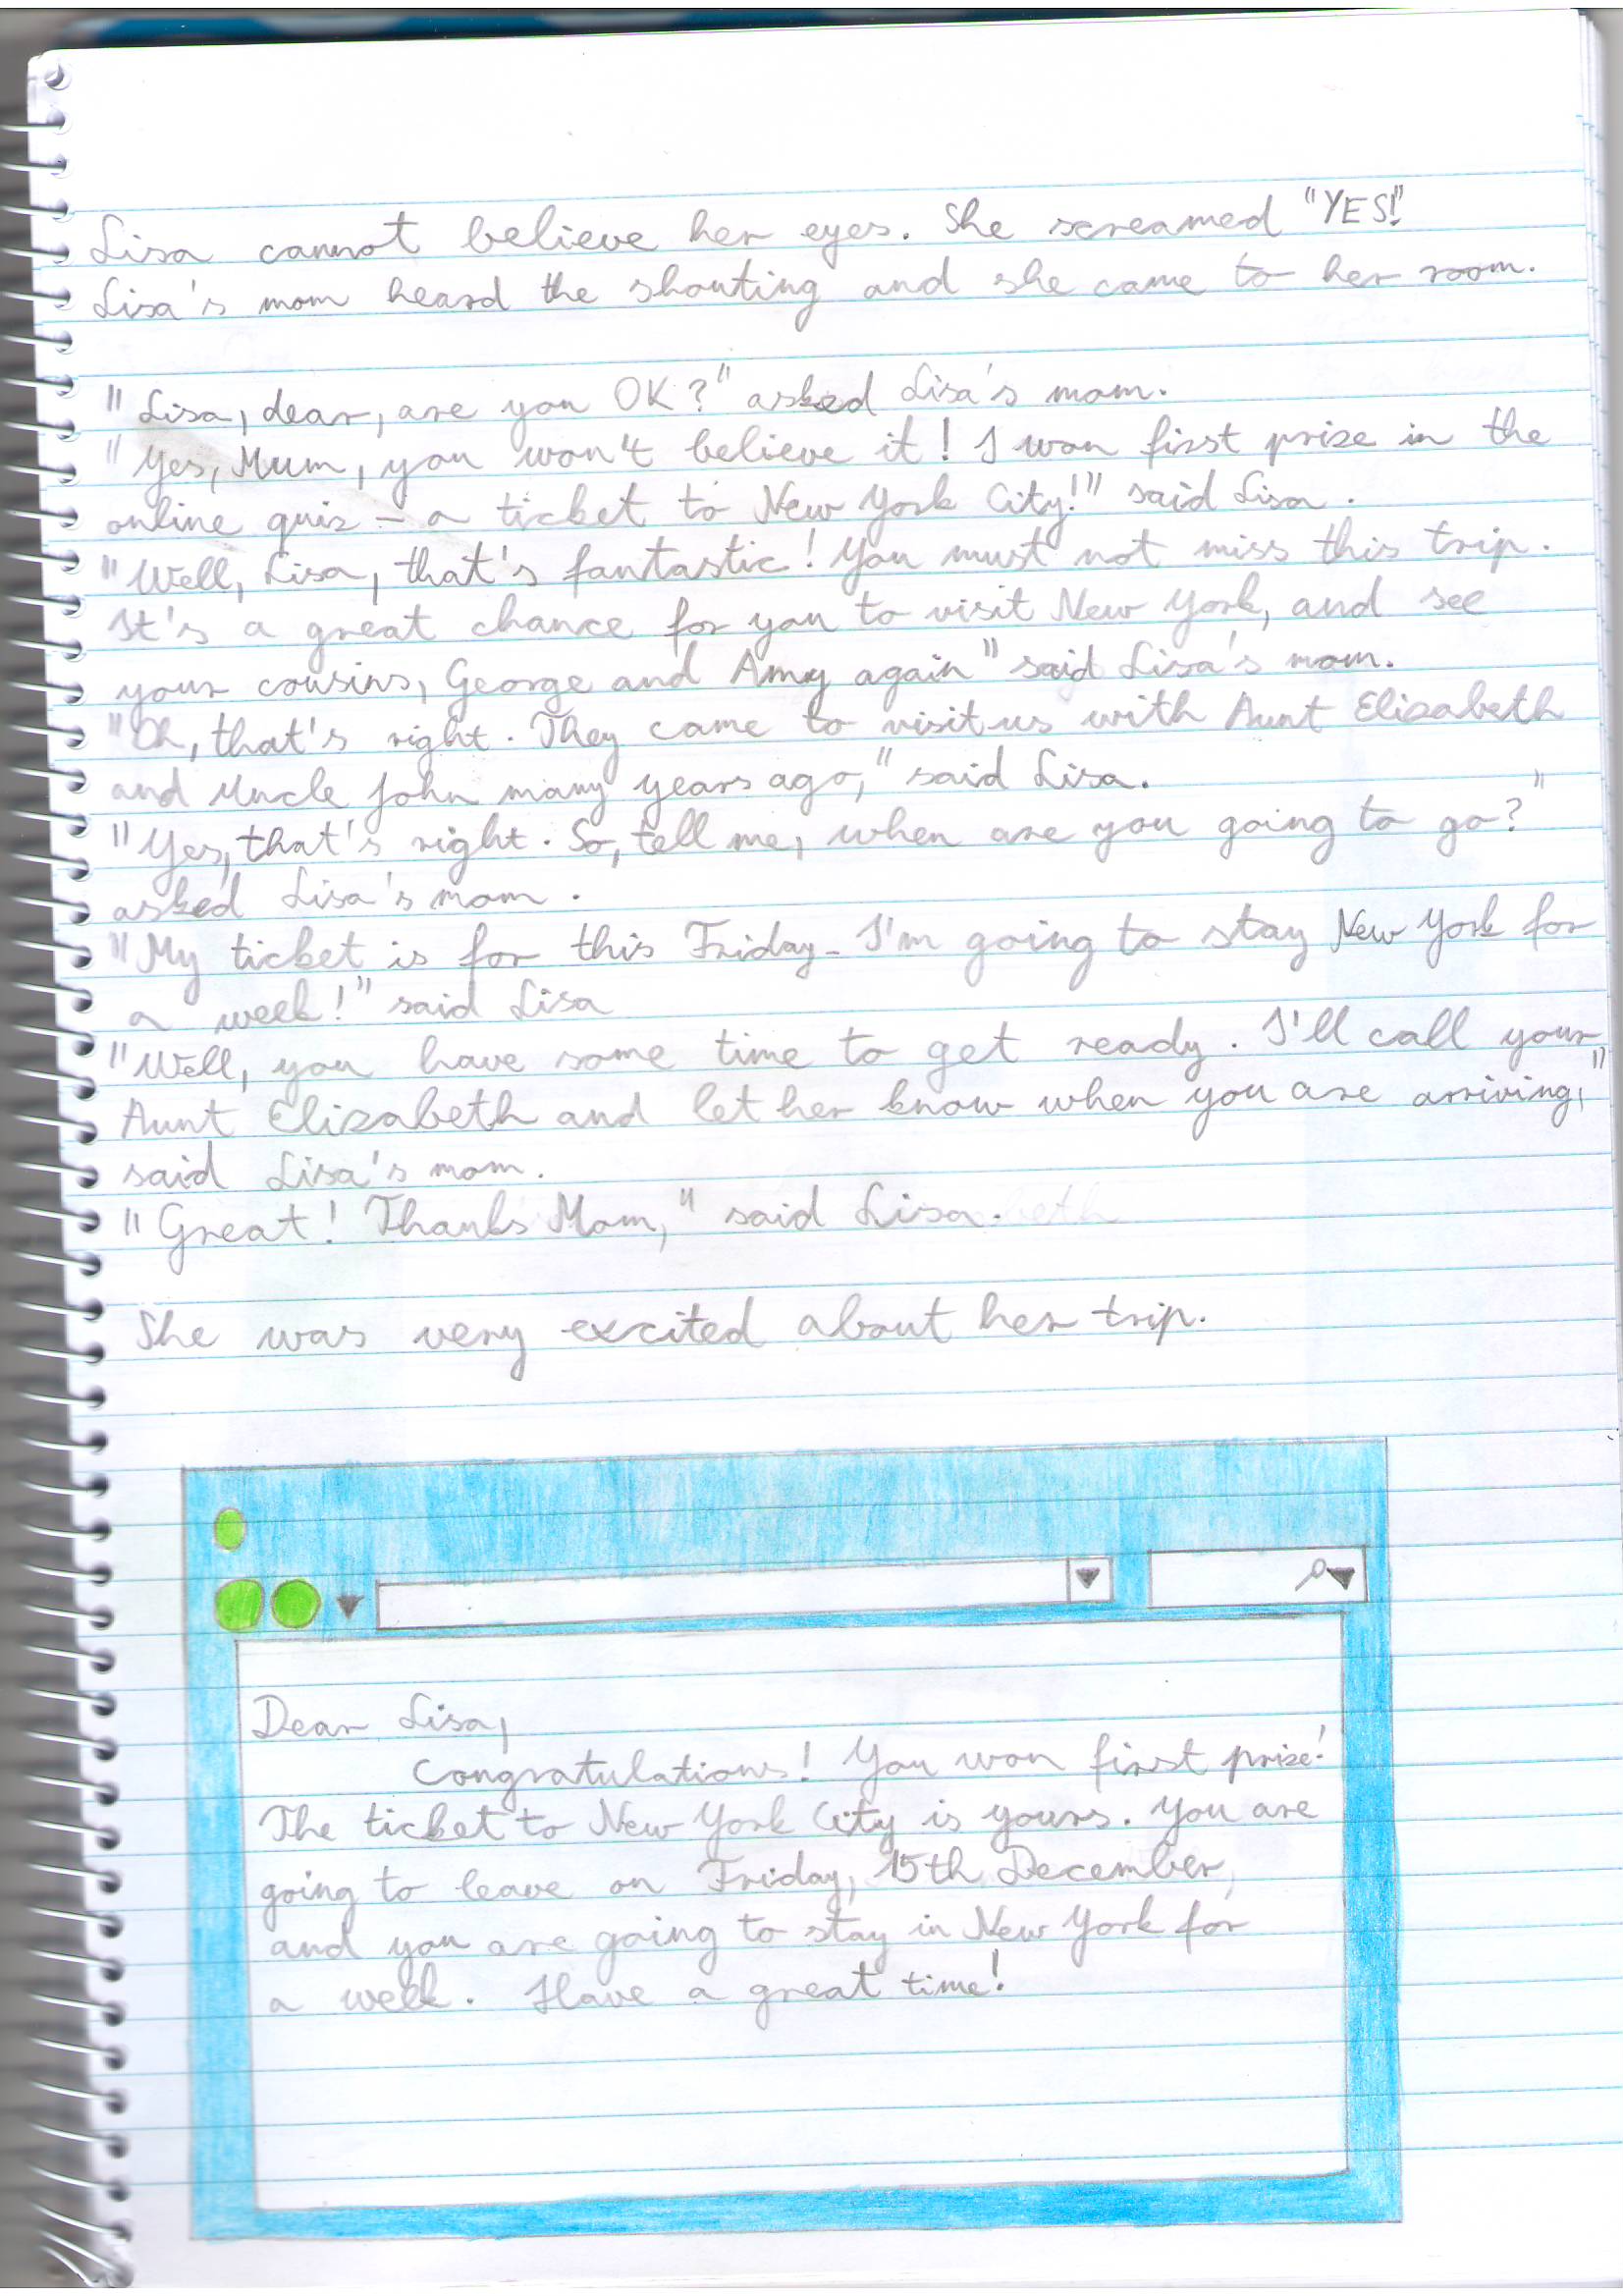 Lisa cannot believe her eyes. She screamed "YES!"
Lisa's mom heard the shouting and she came to her room.
"Lisa, dear, are you OK?" asked Lisa's mom.
"Yes, Mum, you won't believe it! I won first prize in the
online quiz - a ticket to New York City!" said Lisa.
"Well, Lisa, that's fantastic! You must not miss this trip.
It's a great chance for you to visit New York, and see
your cousins, George and Amy again" said Lisa's mom.
"Oh, that's right. They came to visit us with Aunt Elizabeth
and Uncle John many years ago," said Lisa.
"Yes, that's right. So, tell me, when are you going to go?"
asked Lisa's mom.
"My ticket is for this Friday - I'm going to stay New York for
a week!" said Lisa
"Well, you have some time to get ready. I'll call your
Aunt Elizabeth and let her know when you are arriving,"
said Lisa's mom.
"Great! Thanks Mom," said Lisa.
She was very excited about her trip.
Dear Lisa,
Congratulations! You won first prize!
The ticket to New York City is yours. You are
going to leave on Friday, 15th December,
and you are going to stay in New York for
a week. Have a great time!